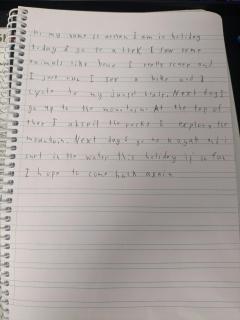 Hi my name is I am is holiday
today I go to a trek. I saw some
animals like bear I really scared and
I just run I see a bike and I
cycle to my house Next day I
go up to the mountain. At the top of
the I the rocks I explore the
mountain. Next day I go to kayak and I
surf in the water this holiday is so fun
I hope to come back again